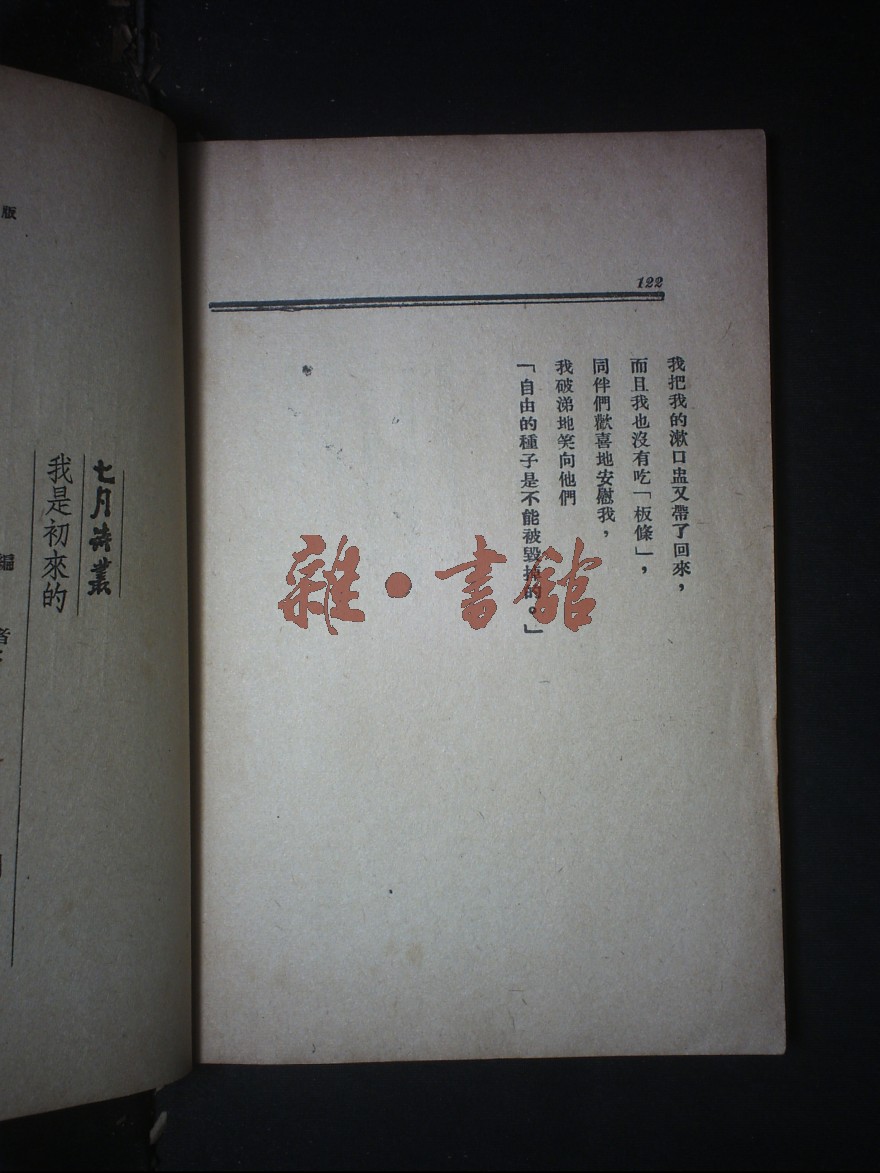 122
我把我的漱口盅又帶了回來，
而且我也沒有吃「板條」，
同伴們歡喜地安慰我，
我破涕地笑向他們
「自由的種子是不能被毀掉的。」
雜·書館
版
七月詩叢
我是初來的
編
者